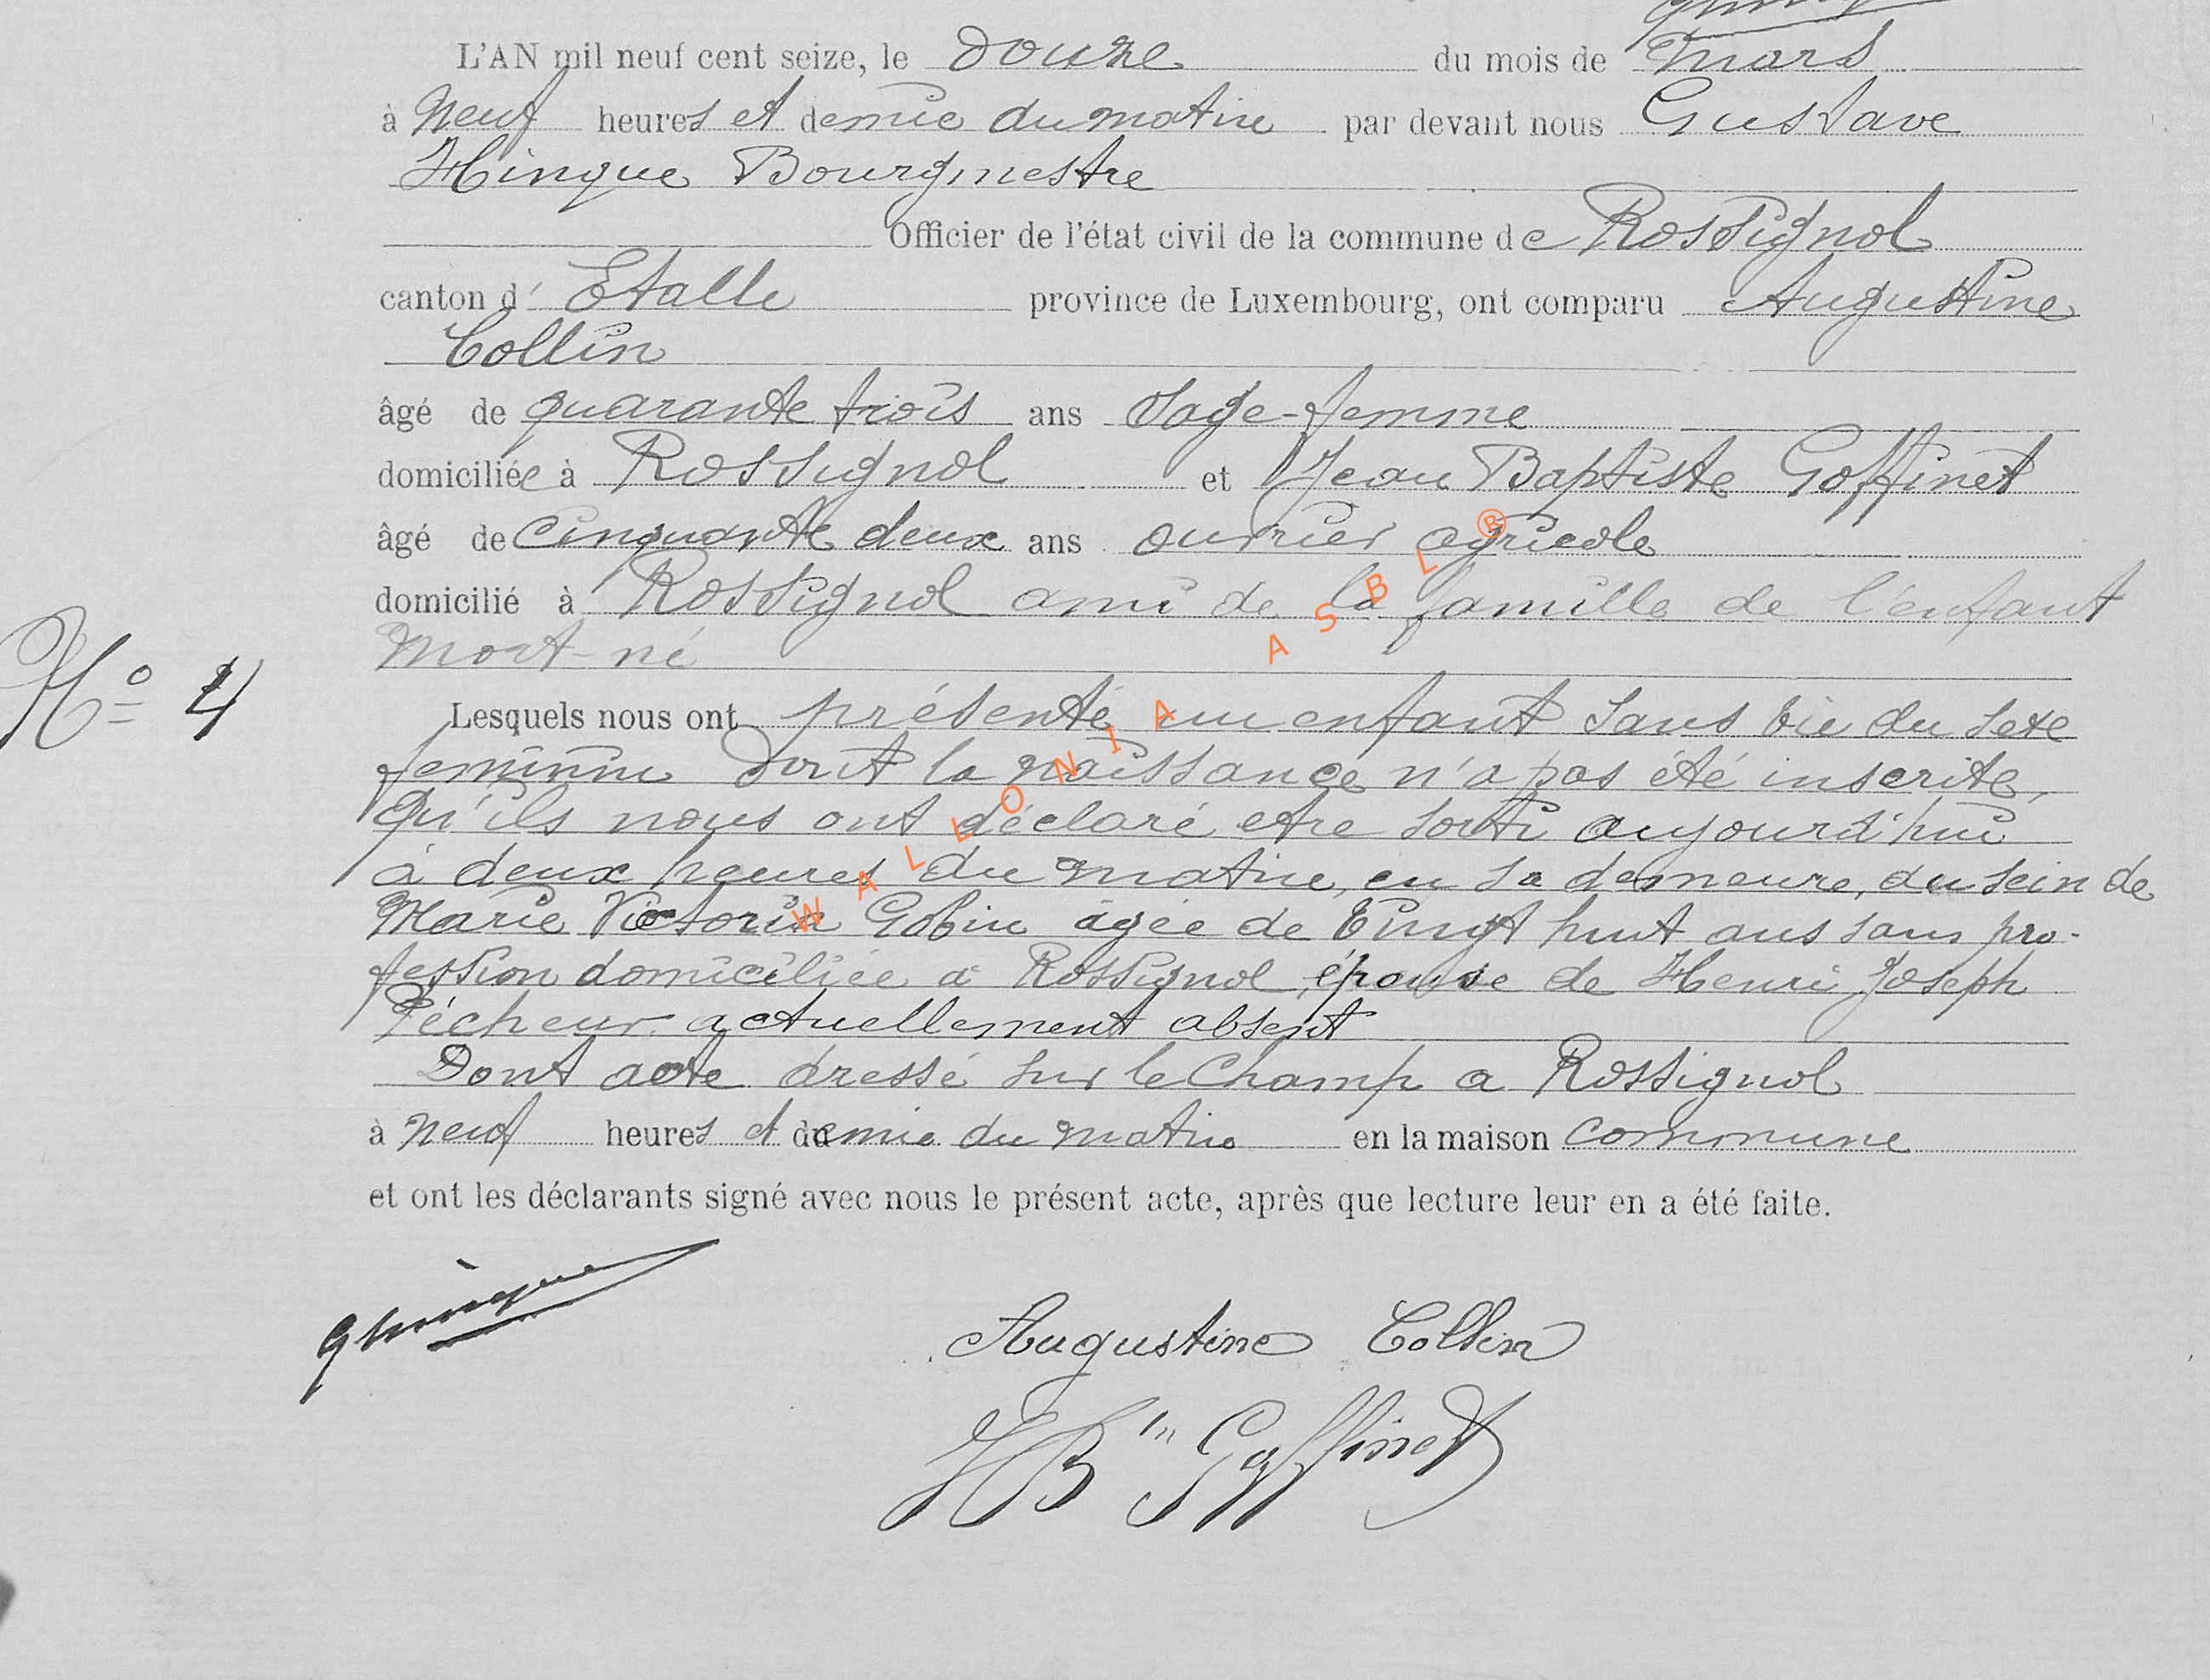 L'AN mil neuf cent seize, le douze du mois de mars
à neuf heures et demie du matin par devant nous Gustave
Hinque Bourgmestre
Officier de l'état civil de la commune de Rossignol
canton d' Etalle province de Luxembourg, ont comparu Augustine
Collin
âgé de quarante trois ans Sage-femme
domiciliée à Rossignol et Jean Baptiste Goffinet
âgé de cinquante deux ans ouvrier agricole
domicilié à Rossignol ami de la famille de l'enfant
mort-né
N° 4
Lesquels nous ont présenté un enfant sans vie du sexe
feminin dont la naissance n'a pas été inscrite,
qu'ils nous ont déclaré etre sorti aujourd'hui
à deux heures du matin, en sa demeure, du sein de
Marie Victorine Gobin âgée de vingt huit ans sans pro-
fession domiciliée à Rossignol, épouse de Henri Joseph
Pécheur actuellement absent
Dont acte dressé sur le champ a Rossignol
à neuf heures et demie du matin en la maison commune
et ont les déclarants signé avec nous le présent acte, après que lecture leur en a été faite.
GHinque
Augustine Collin
JBte Goffinet
WALLONIA ASBL ®